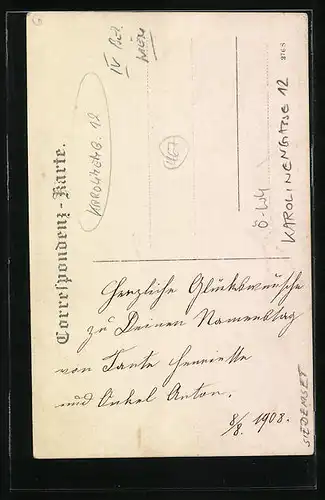 Correspondenz-Karte.
IV Bez.
Wien
KAROLINENG. 12
2765
Ö-W4
KAROLINENGASSE 12
Herzliche Glückswünsche
zu Deinen Namenstag
von Tante Henriette
und Onkel Anton.
8/8. 1908.
SIEDEMSET